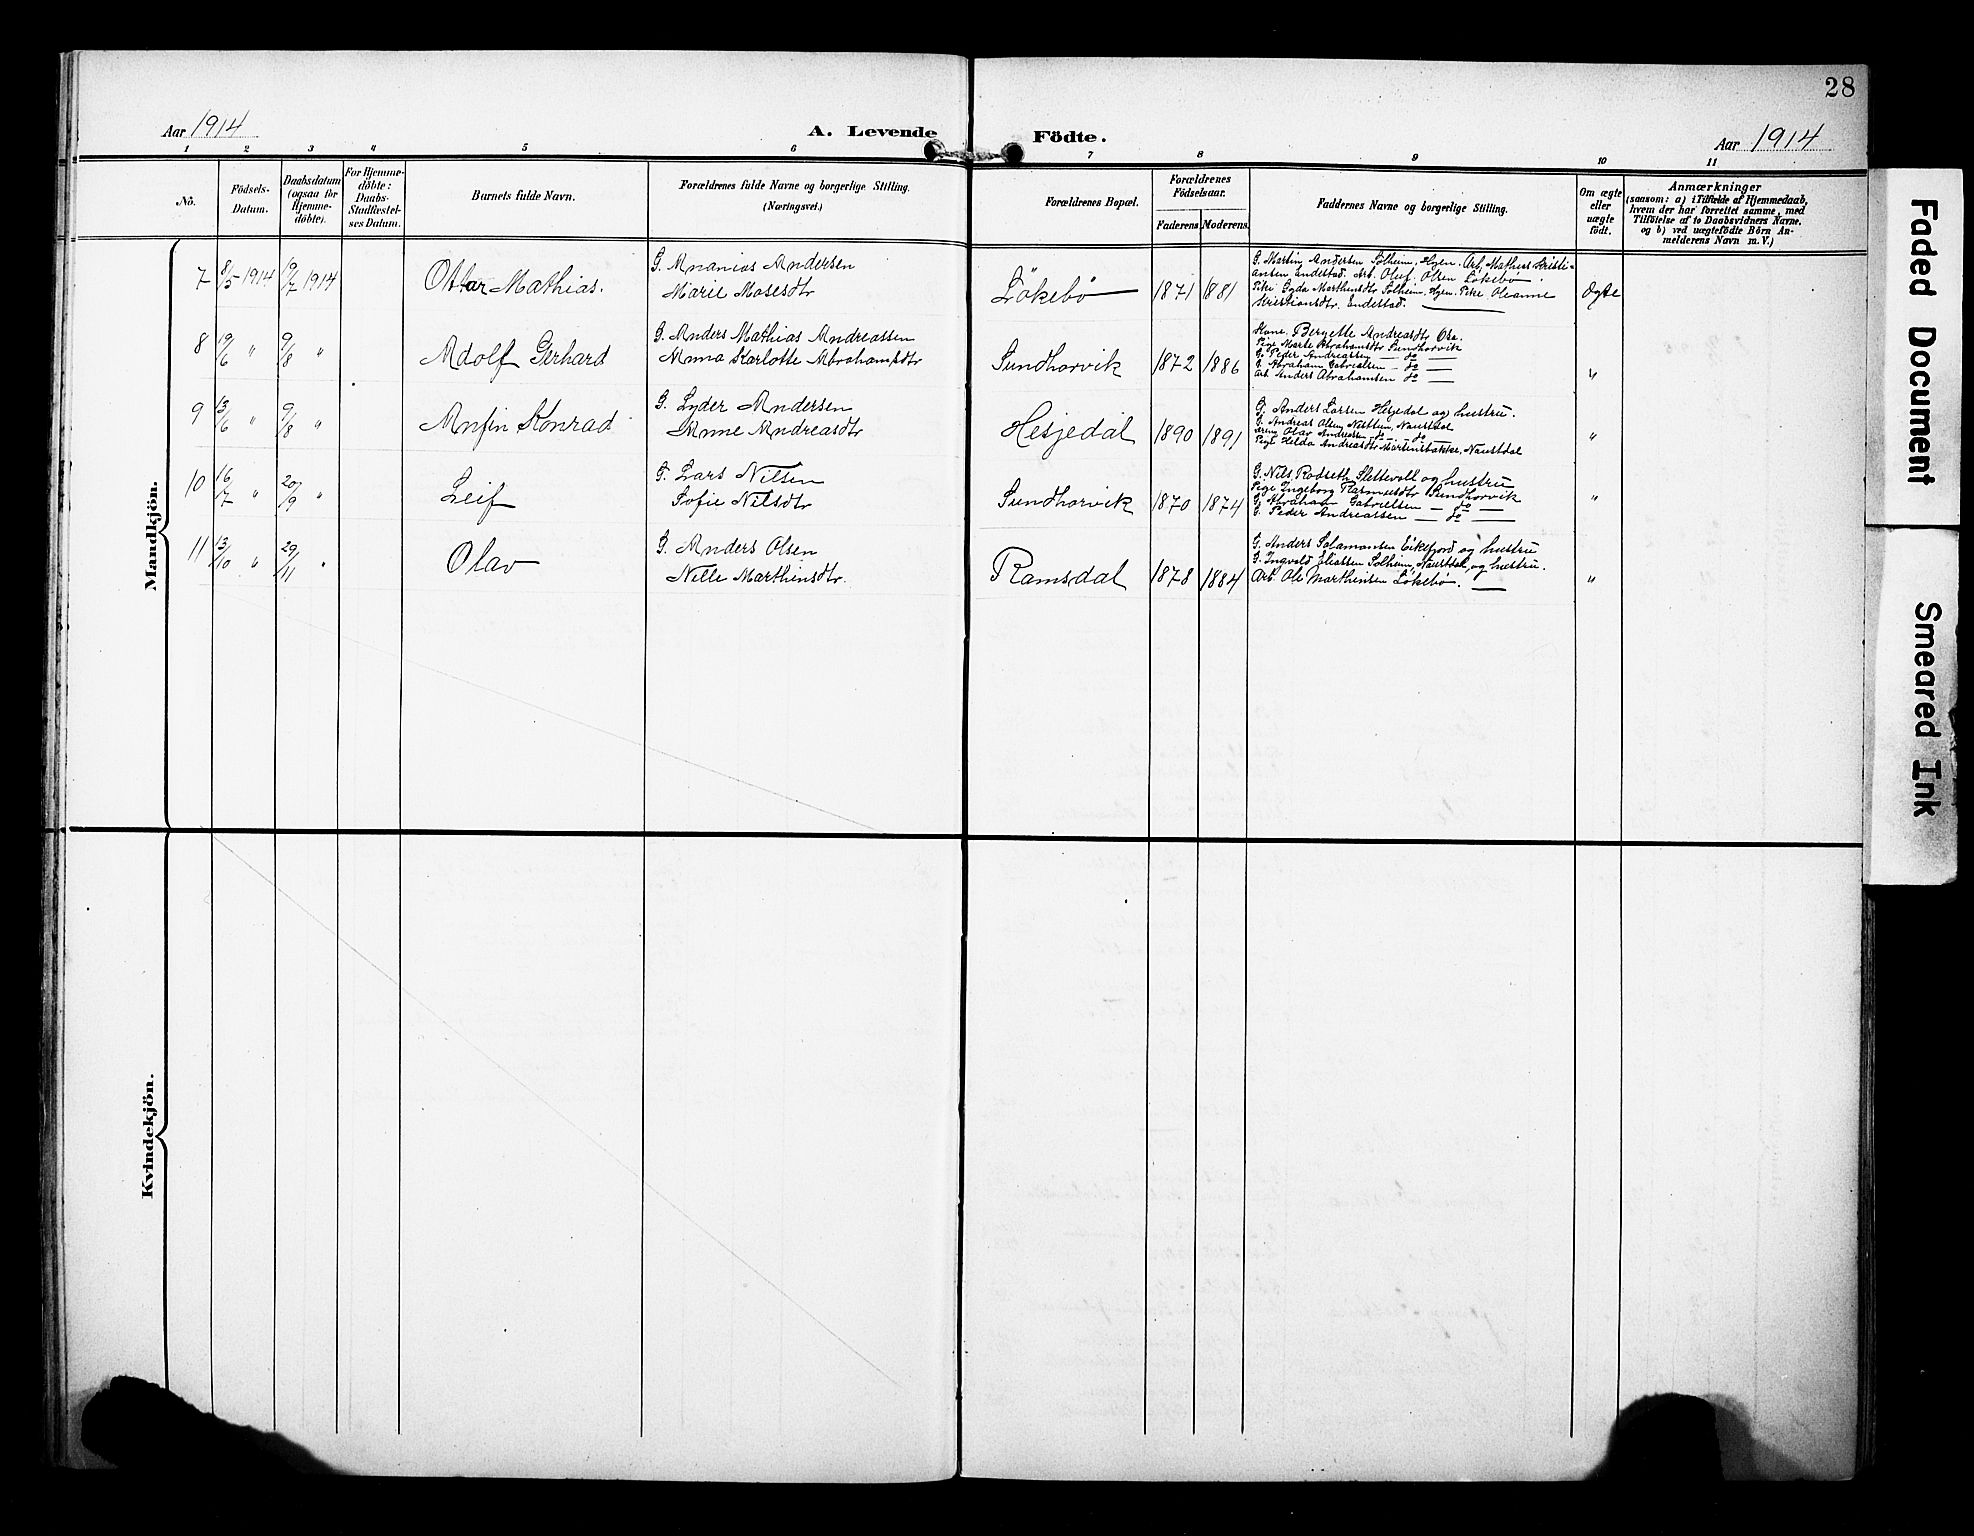 28
Aar 1914
A. Levende Födte.
Aar 1914
1 2 3 4 5 6 7 8 9 10 11
No.
Födsels-
Datum.
Daabsdatum
(ogsaa for
Hjemme-
döbte).
For Hjemme-
döbte:
Daabs-
Stadfæstel-
ses Datum.
Barnets fulde Navn.
Forældrenes fulde Navne og borgerlige Stilling.
(Næringsvei.)
Forældrenes Bopæl.
Forældrenes
Födselsaar.
Faderens Moderens
Faddernes Navne og borgerlige Stilling.
Om ægte
eller
uægte
födt.
Anmærkninger
(saasom: a) i Tilfælde af Hjemmedaab,
hvem der har forrettet samme, med
Tilföielse af to Daabsvidners Navne.
og b) ved uægtefödte Börn An-
melderens Navn m. V.)
Mandkjön.
7 8/5 1914 19/7 1914 Ottar Mathias.
G. Ananias Andersen
Marie Mosesdtr
Lökebø 1871 1881
G. Martin Andersen Solheim, Hyen. Arb. Mathias Kristi-
ansen Endestad. Arb. Oluf Olsen Lökebø.
Pike Gyda Marthensdtr Solheim, Hyen. Pike Oleanne
Kristiansdtr. Endestad.
Ægte
8 19/6 " 9/8 " Adolf Gerhard
G. Anders Mathias Andreassen
Anna Karlotte Abrahamsdtr
Sundhorvik 1872 1886
Kone Bergette Andreasdtr Ose.
Pige Marte Abrahamsdtr Sundhorvik
G. Peder Andreassen — do —
G. Abraham Gabrielsen — do —
Arb. Anders Abrahamsen do —
"
9 13/6 " 9/8 " Anfin Konrad
G. Lyder Andersen
Anne Andreasdtr
Hesjedal 1890 1891
G. Anders Larsen Hesjedal og hustru.
G. Andreas Olsen Naustdal
Olav Andreassen do — do —
Pige Hilda Andreasdtr Martinsbakke, Naustdal
"
10 16/7 " 20/9 " Leif
G. Lars Nilsen
Sofie Nilsdtr
Sundhorvik 1870 1874
G. Nils Rodseth, Slettevoll og hustru
Pige Ingeborg Rasmusdtr Sundhorvik
G. Abraham Gabrielsen — do —
G. Peder Andreassen — do —
"
11 13/10 " 29/11 " Olav
G. Anders Olsen
Nille Marthinsdtr.
Ramsdal 1878 1884
G. Anders Salamonsen Eikefjord og hustru
G. Ingvald Eliassen Solheim, Naustdal, og hustru.
Arb. Ole Marthinsen Lökebø.
"
Kvindekjön.
Faded Document
Smeared Ink